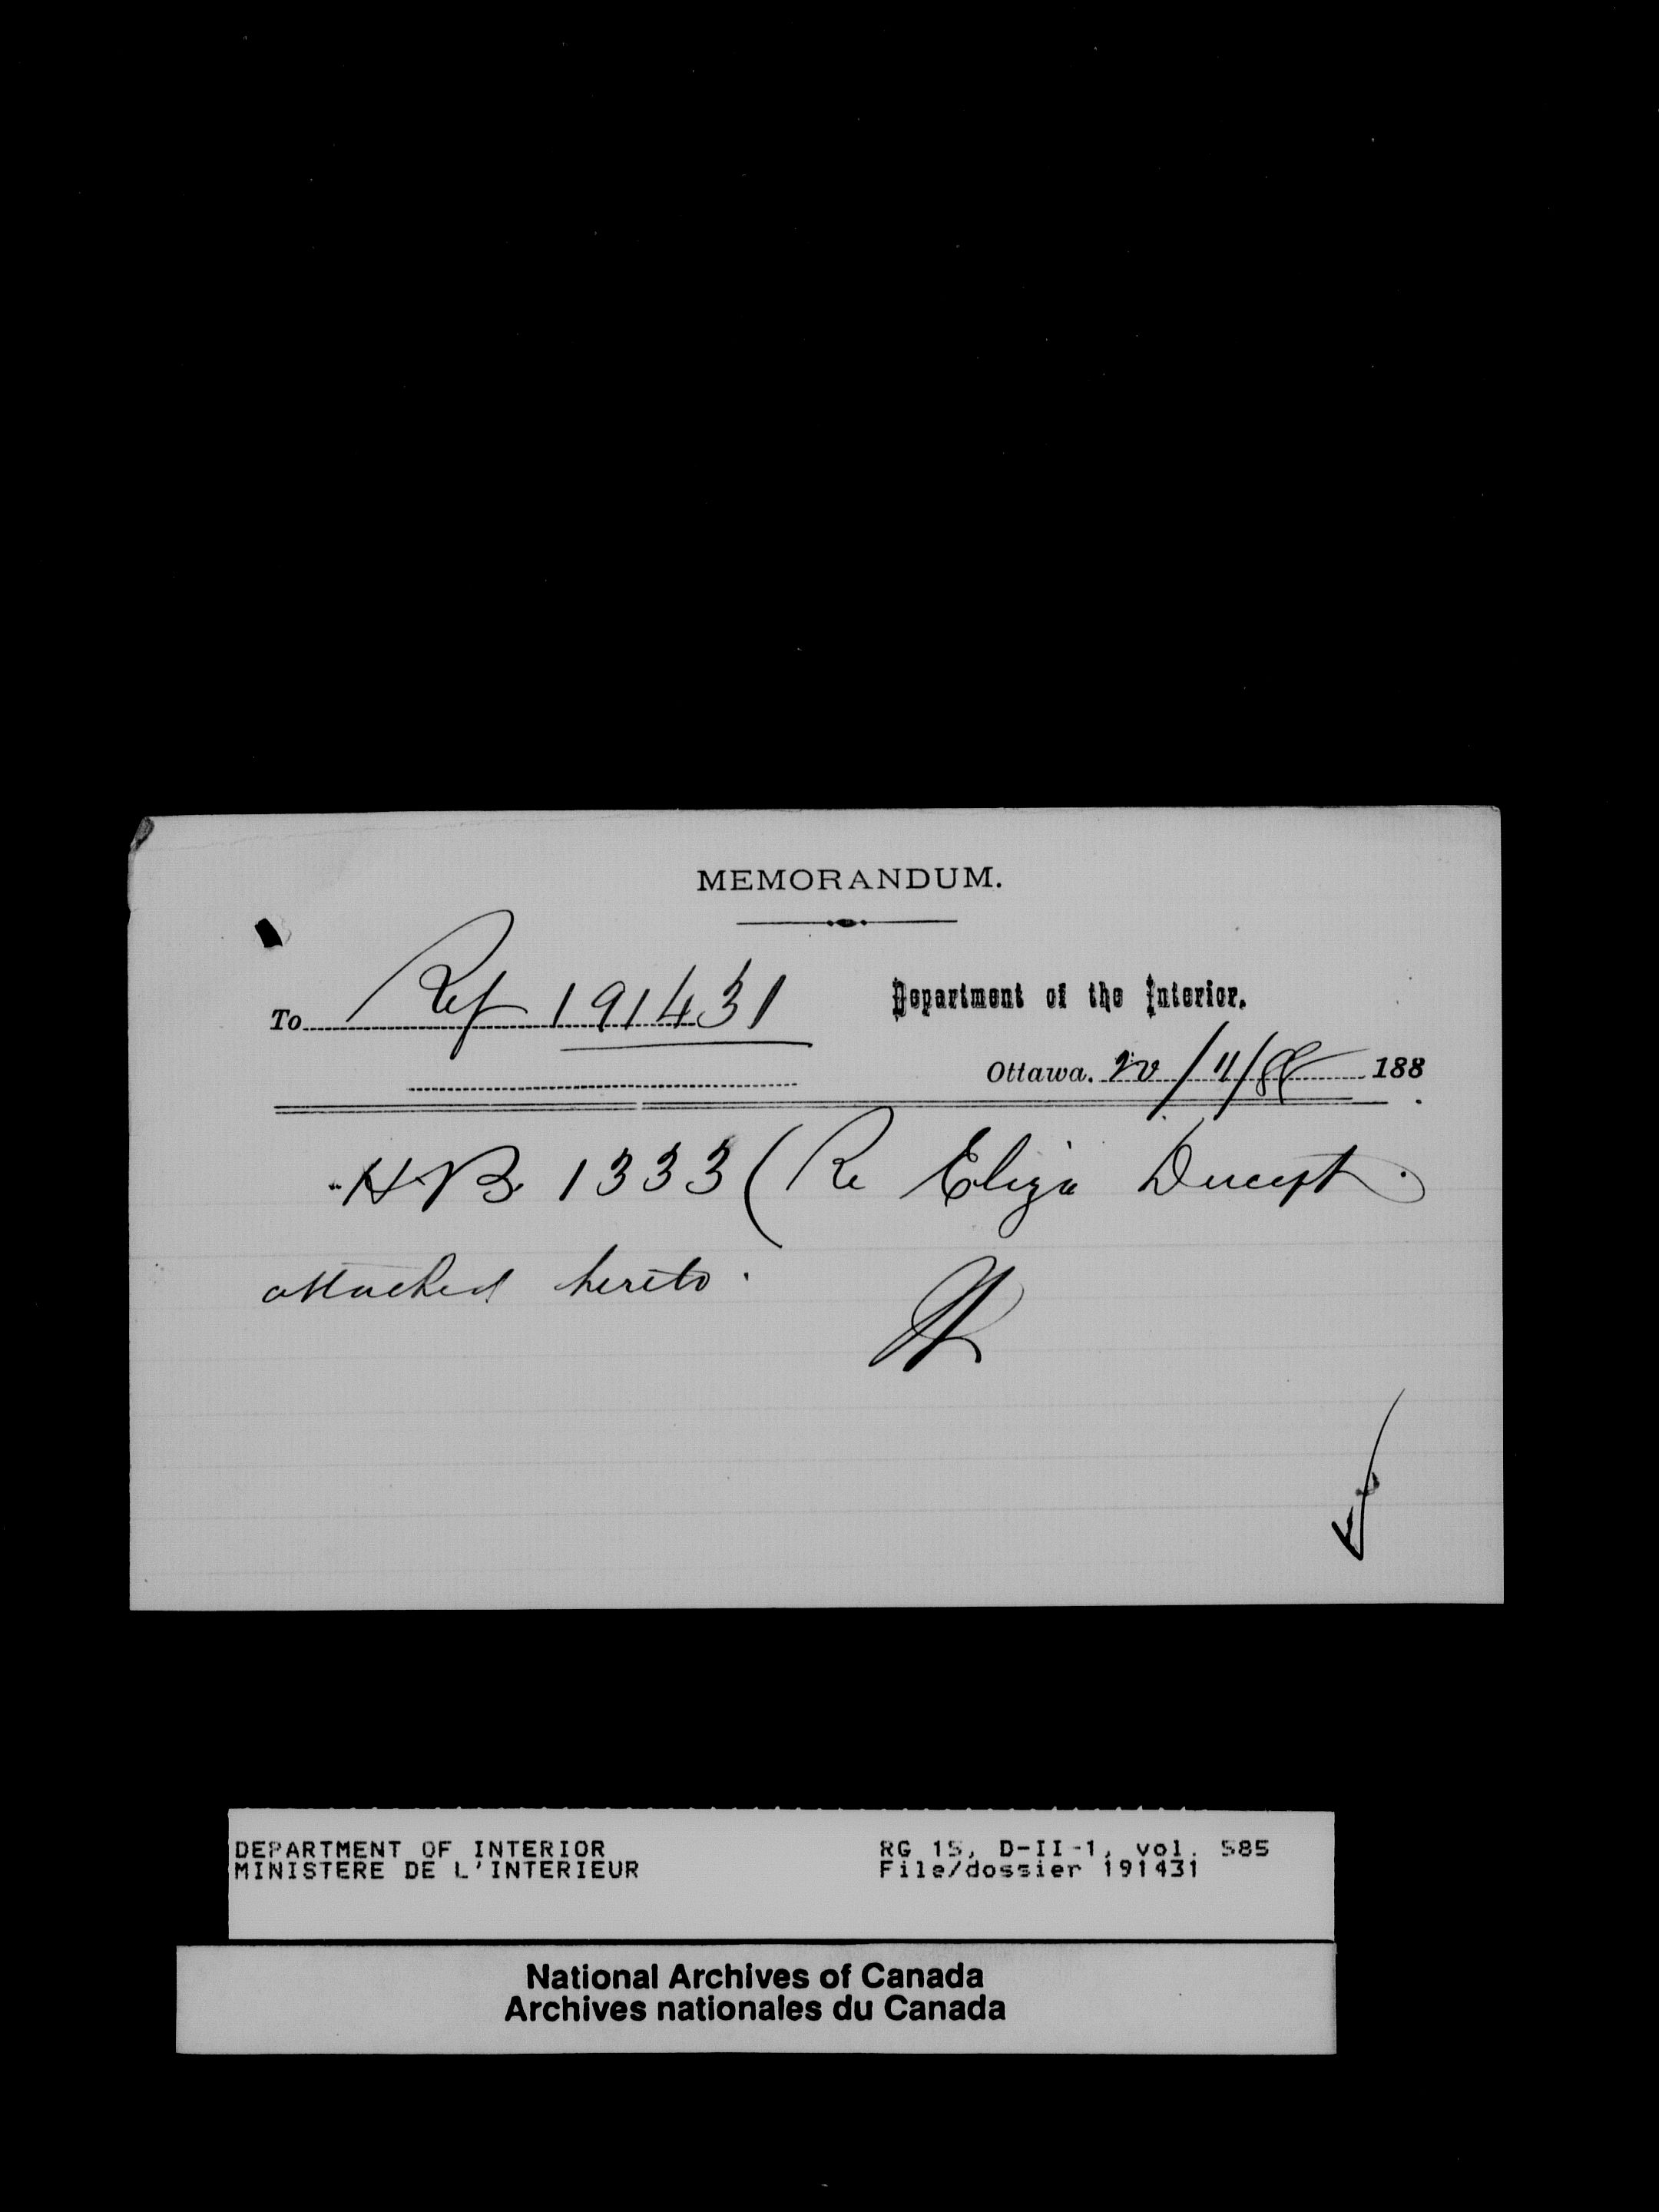 MEMORANDUM.
To Ref 191431
Department of the Interior.
Ottawa. 20/11/88 188
H.B. 1333 (Re Eliza
attached hereto.
DEPARTMENT OF INTERIOR
MINISTERE DE L'INTERIEUR
RG 15, D-II-1, vol. 585
File/dossier 191431
National Archives of Canada
Archives nationales du Canada